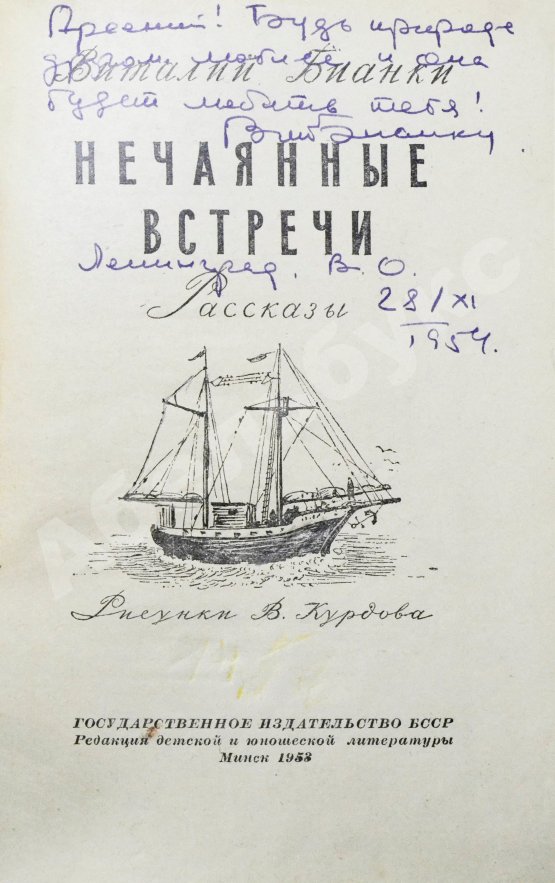 Арсений! Будь природе
другом, люби её и она
Виталий Бианки
будет любить тебя!
Вит Бианки
НЕЧАЯННЫЕ
ВСТРЕЧИ
Ленинград, В. О.
Рассказы
28/XI
1954.
Рисунки В. Курдова
ГОСУДАРСТВЕННОЕ ИЗДАТЕЛЬСТВО БССР
Редакция детской и юношеской литературы
Минск 1953